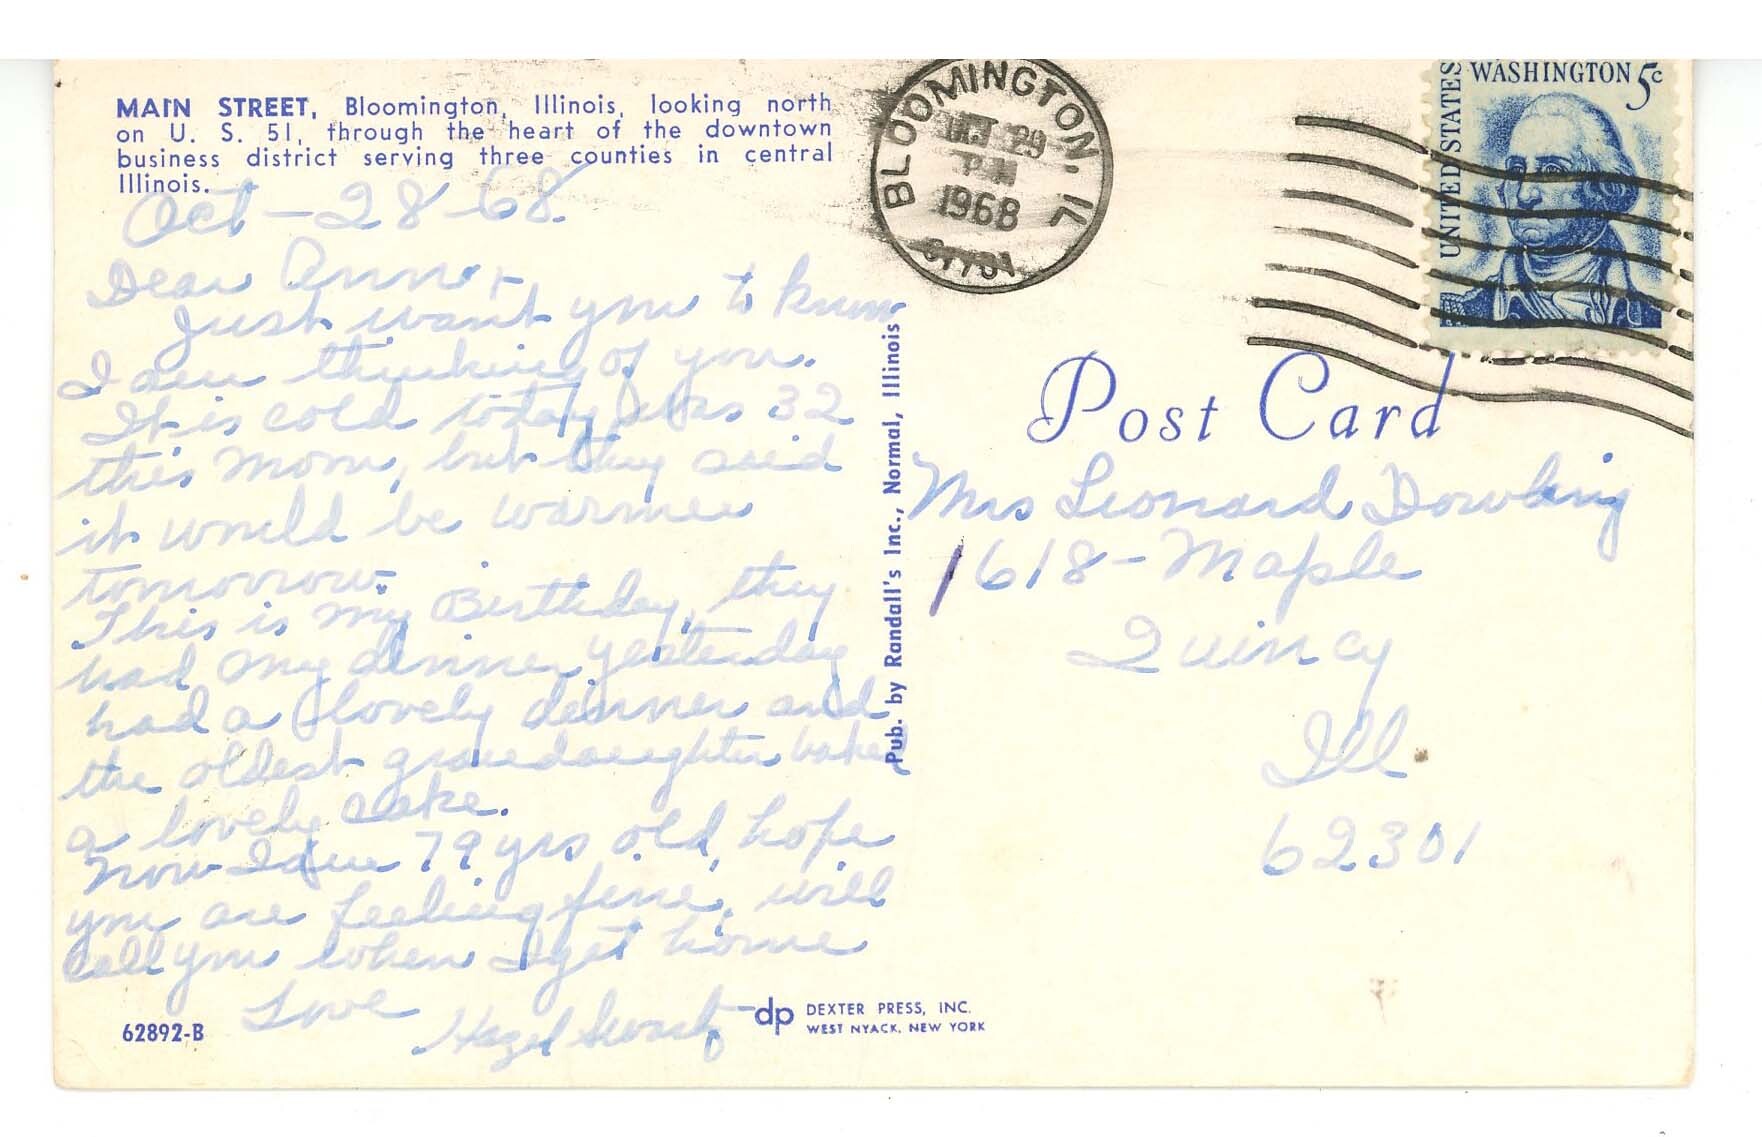 MAIN STREET, Bloomington, Illinois, looking north
on U. S. 51, through the heart of the downtown
business district serving three counties in central
Illinois.
Oct - 28 - 68.
Dear Anna,
Just want you to know
I am thinking of you.
It is cold today was 32
this morn, but they said
it would be warmer
tomorrow.
This is my Birthday, they
had my dinner yesterday
had a lovely dinner and
the oldest grandaughter baked
a lovely cake.
Now I am 79 yrs old, hope
you are feeling fine, will
call you when I get home
Love
Hazel
62892-B
Pub. by Randall's Inc., Normal, Illinois
dp DEXTER PRESS, INC.
WEST NYACK, NEW YORK
BLOOMINGTON, IL
OCT 29
PM
1968
UNITED STATES
WASHINGTON 5c
Post Card
Mrs Leonard Dowling
1618 - Maple
Quincy
Ill.
62301